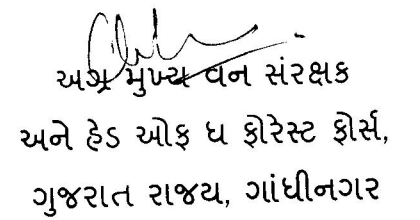 અગ્ર મુખ્ય વન સંરક્ષક
અને હેડ ઓફ ધ ફોરેસ્ટ ફોર્સ,
ગુજરાત રાજય, ગાંધીનગર